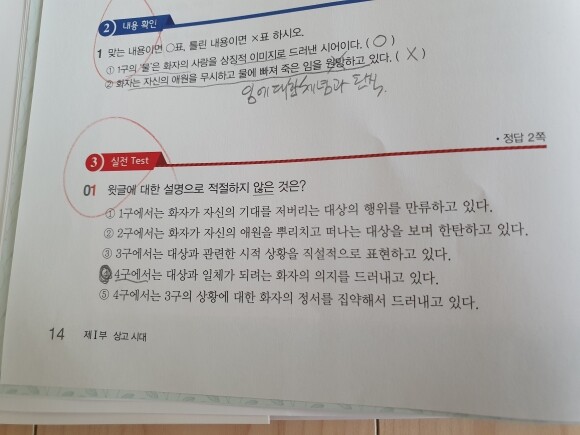 2 내용 확인
1 맞는 내용이면 ○표, 틀린 내용이면 ×표 하시오.
① 1구의 '물'은 화자의 사랑을 상징적 이미지로 드러낸 시어이다. ( ○ )
② 화자는 자신의 애원을 무시하고 물에 빠져 죽은 임을 원망하고 있다. ( X )
임에 대한 체념과 탄식
3 실전 Test
• 정답 2쪽
01 윗글에 대한 설명으로 적절하지 않은 것은?
① 1구에서는 화자가 자신의 기대를 저버리는 대상의 행위를 만류하고 있다.
② 2구에서는 화자가 자신의 애원을 뿌리치고 떠나는 대상을 보며 한탄하고 있다.
③ 3구에서는 대상과 관련한 시적 상황을 직설적으로 표현하고 있다.
④ 4구에서는 대상과 일체가 되려는 화자의 의지를 드러내고 있다.
⑤ 4구에서는 3구의 상황에 대한 화자의 정서를 집약해서 드러내고 있다.
14 제Ⅰ부 상고 시대